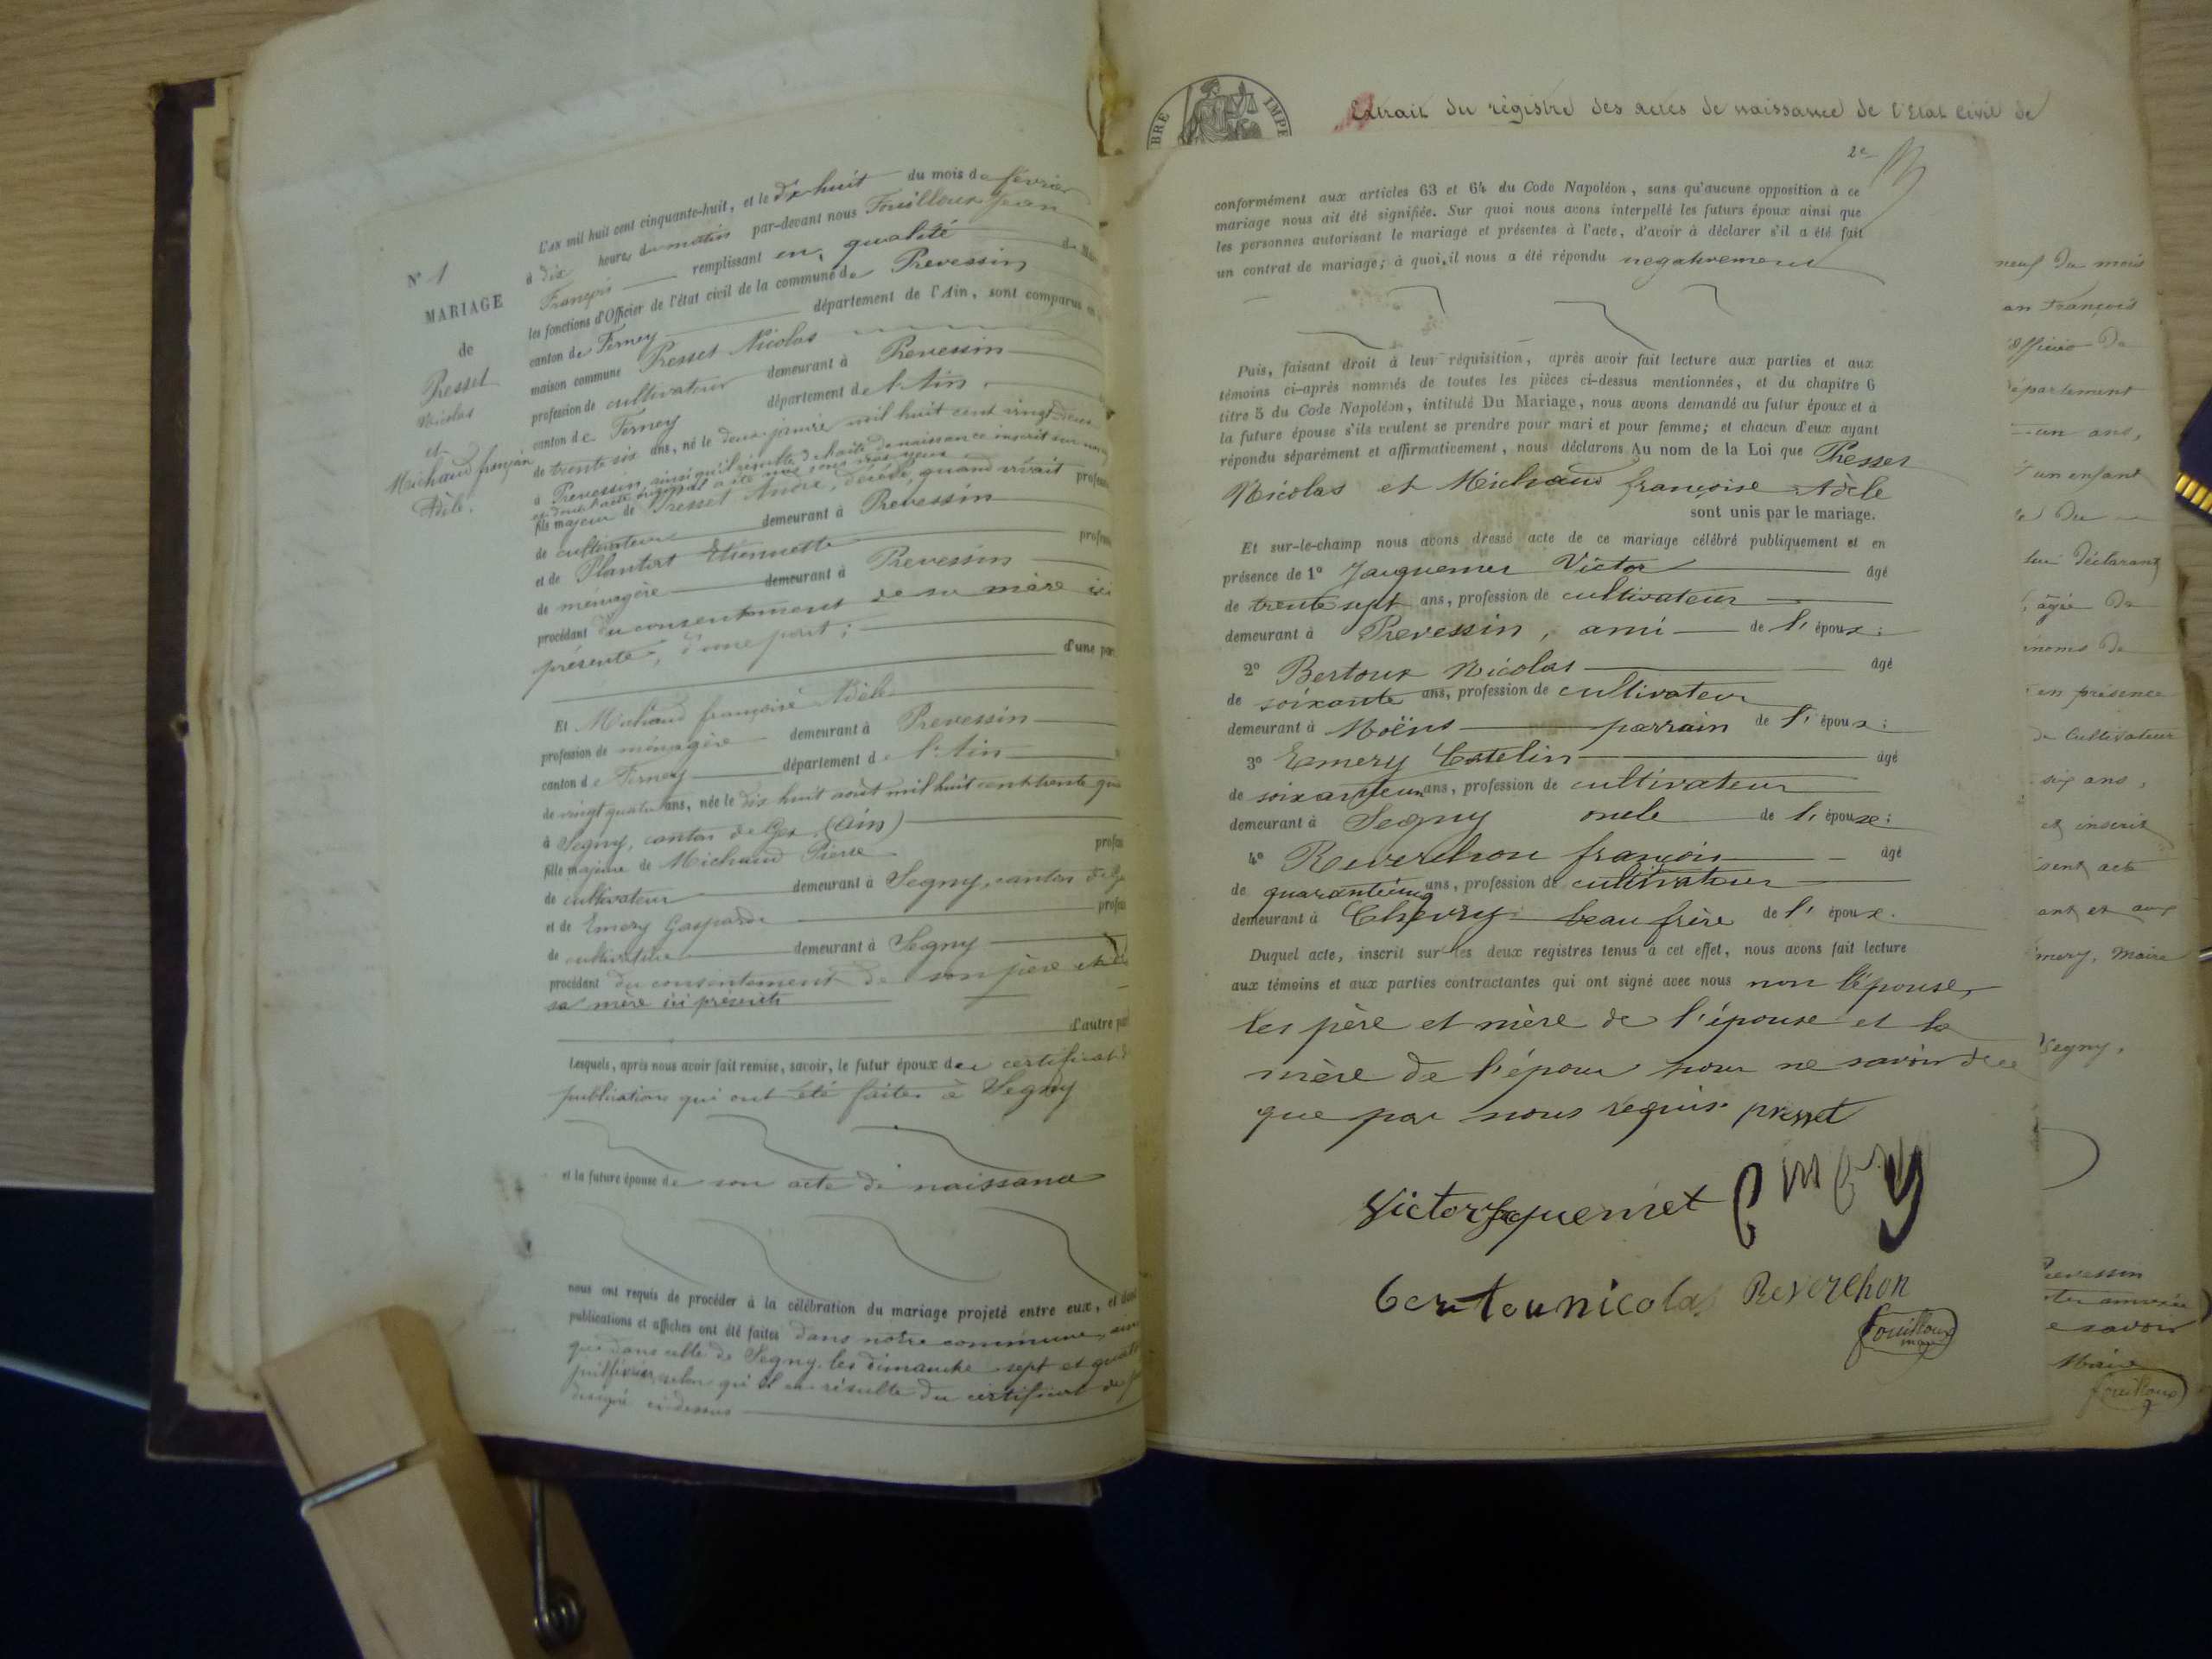 N° 1
MARIAGE
de
Presset
Nicolas
et
Michaud françoise
Adèle.
L'an mil huit cent cinquante-huit, et le dix huit du mois de février
à dix heures du matin par-devant nous Fouilloux Jean
François remplissant en qualité de Maire
les fonctions d'Officier de l'état civil de la commune de Prevessin
canton de Ferney département de l'Ain, sont comparus en
maison commune Presset Nicolas
profession de cultivateur demeurant à Prevessin
canton de Ferney département de l'Ain,
de trente six ans, né le deux janvier mil huit cent vingt deux
à Prevessin, ainsi qu'il résulte de l'acte de naissance inscrit sur
et dont l'acte original a été mis sous nos yeux
fils majeur de Presset André, décédé, quand vivait
de cultivateur demeurant à Prevessin
et de Plantut Etiennette
de ménagère demeurant à Prevessin
procédant du consentement de sa mère ici
présente, d'une part;
d'une part
Et Michaud françoise Adèle
profession de ménagère demeurant à Prevessin
canton de Ferney département de l'Ain
de vingt quatre ans, née le dix huit août mil huit cent trente
à Segny, canton de Gex (Ain)
fille majeure de Michaud Pierre
de cultivateur demeurant à Segny, canton de
et de Emery Gasparde
de cultivatrice demeurant à Segny
procédant du consentement de son père et de
sa mère ici présents
d'autre part
Lesquels, après nous avoir fait remise, savoir, le futur époux des certificat
publications qui ont été faites à Segny
et la future épouse de son acte de naissance
nous ont requis de procéder à la célébration du mariage projeté entre eux, et dont
publications et affiches ont été faites dans notre commune, ainsi
que dans celle de Segny les dimanche sept et
février, selon qu'il en résulte du certificat de
désigné ci-dessus
Extrait du régistre des actes de naissance de l'Etat Civil de
2e
conformément aux articles 63 et 64 du Code Napoléon, sans qu'aucune opposition à ce
mariage nous ait été signifiée. Sur quoi nous avons interpellé les futurs époux ainsi que
les personnes autorisant le mariage et présentes à l'acte, d'avoir à déclarer s'il a été fait
un contrat de mariage; à quoi, il nous a été répondu negativement
Puis, faisant droit à leur réquisition, après avoir fait lecture aux parties et aux
témoins ci-après nommés de toutes les pièces ci-dessus mentionnées, et du chapitre 6
titre 5 du Code Napoléon, intitulé Du Mariage, nous avons demandé au futur époux et à
la future épouse s'ils veulent se prendre pour mari et pour femme; et chacun d'eux ayant
répondu séparément et affirmativement, nous déclarons Au nom de la Loi que Presset
Nicolas et Michaud françoise Adèle
sont unis par le mariage.
Et sur-le-champ nous avons dressé acte de ce mariage célébré publiquement et en
présence de 1° Jacquemet Victor âgé
de trente sept ans, profession de cultivateur
demeurant à Prevessin, ami de l'époux;
2° Bertoux Nicolas âgé
de soixante ans, profession de cultivateur
demeurant à Moëns parrain de l'époux;
3° Emery Catelin âgé
de soixante un ans, profession de cultivateur
demeurant à Segny oncle de l'épouse;
4° Reverchon françois âgé
de quarante cinq ans, profession de cultivateur
demeurant à Chevry beau frère de l'époux.
Duquel acte, inscrit sur les deux registres tenus à cet effet, nous avons fait lecture
aux témoins et aux parties contractantes qui ont signé avec nous non l'épouse,
les père et mère de l'épouse et la
mère de l'époux pour ne savoir de ce
que par nous requis presset
Victor Jaquemet Emery
bertounicolas Reverchon
fouilloux
maire
neuf du mois
an François
officier de
département
un ans,
un enfant
du
lui déclarant
âgée de
énoms de
en présence
de Cultivateur
six ans,
et inscrit
sent acte
ant et aux
mery, Maire
Segny,
Prevessin
annexée
e savoir
Maire
fouilloux